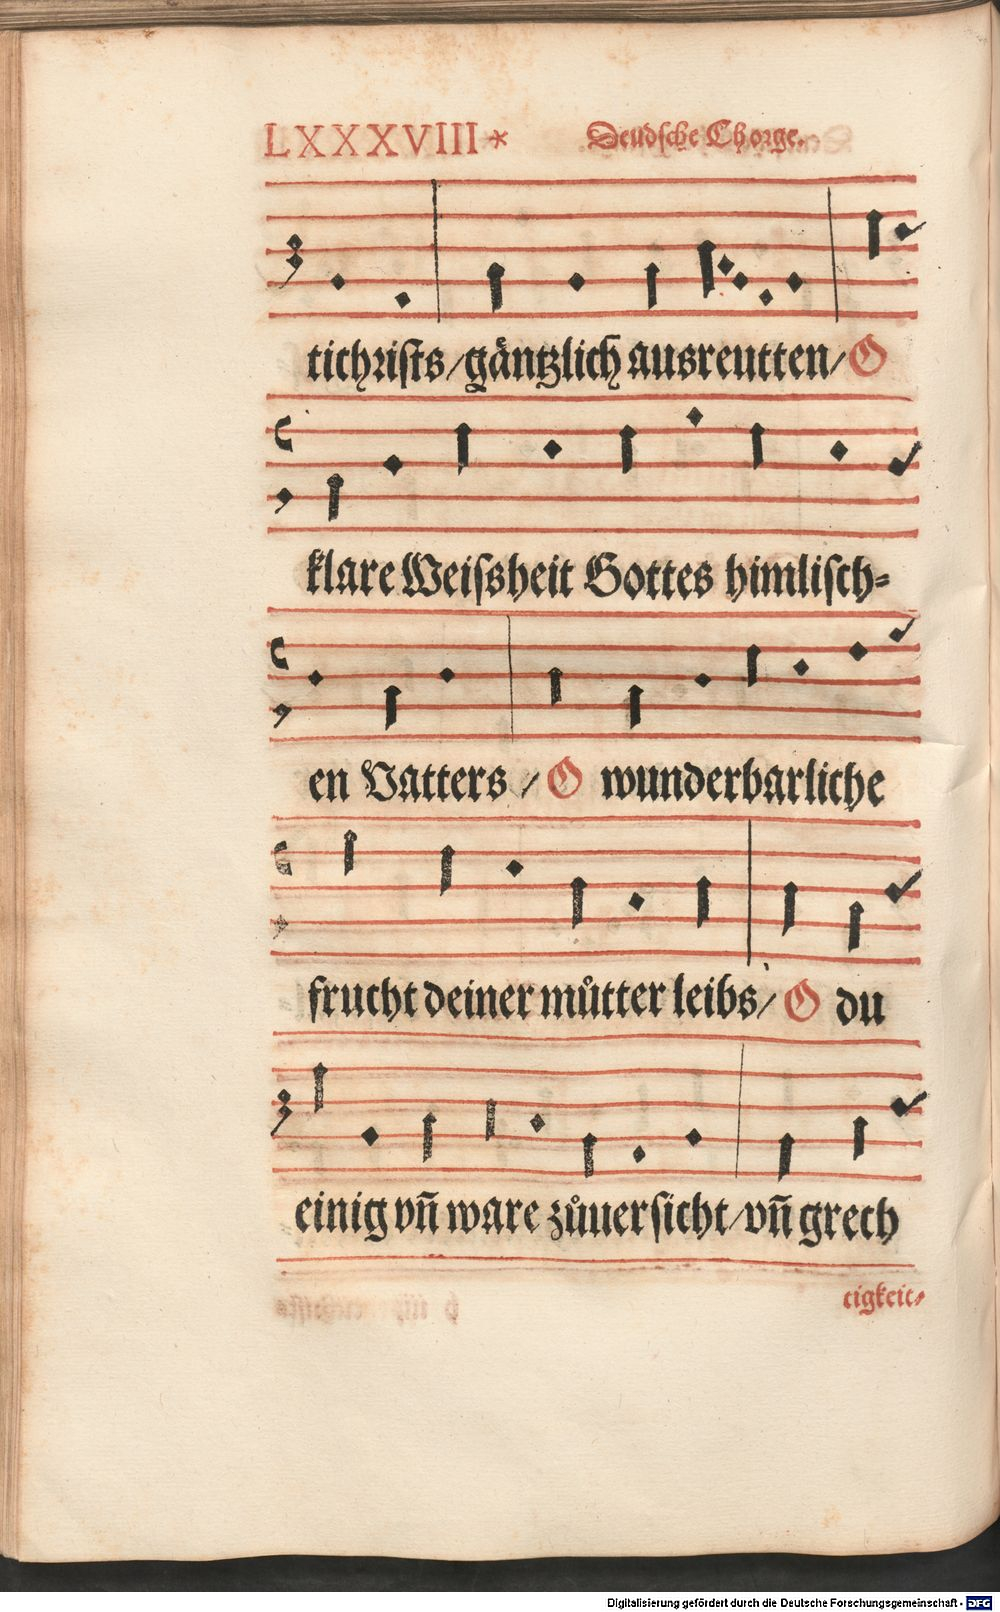 LXXXVIII* Deudsche Chorge.
tichrists/gäntzlich ausreutten/ O
klare Weissheit Gottes himlisch=
en Vatters / O wunderbarliche
frucht deiner můtter leibs/ O du
einig vñ ware zůuersicht/vñ grech
tigkeit/
Digitalisierung gefördert durch die Deutsche Forschungsgemeinschaft - DFG